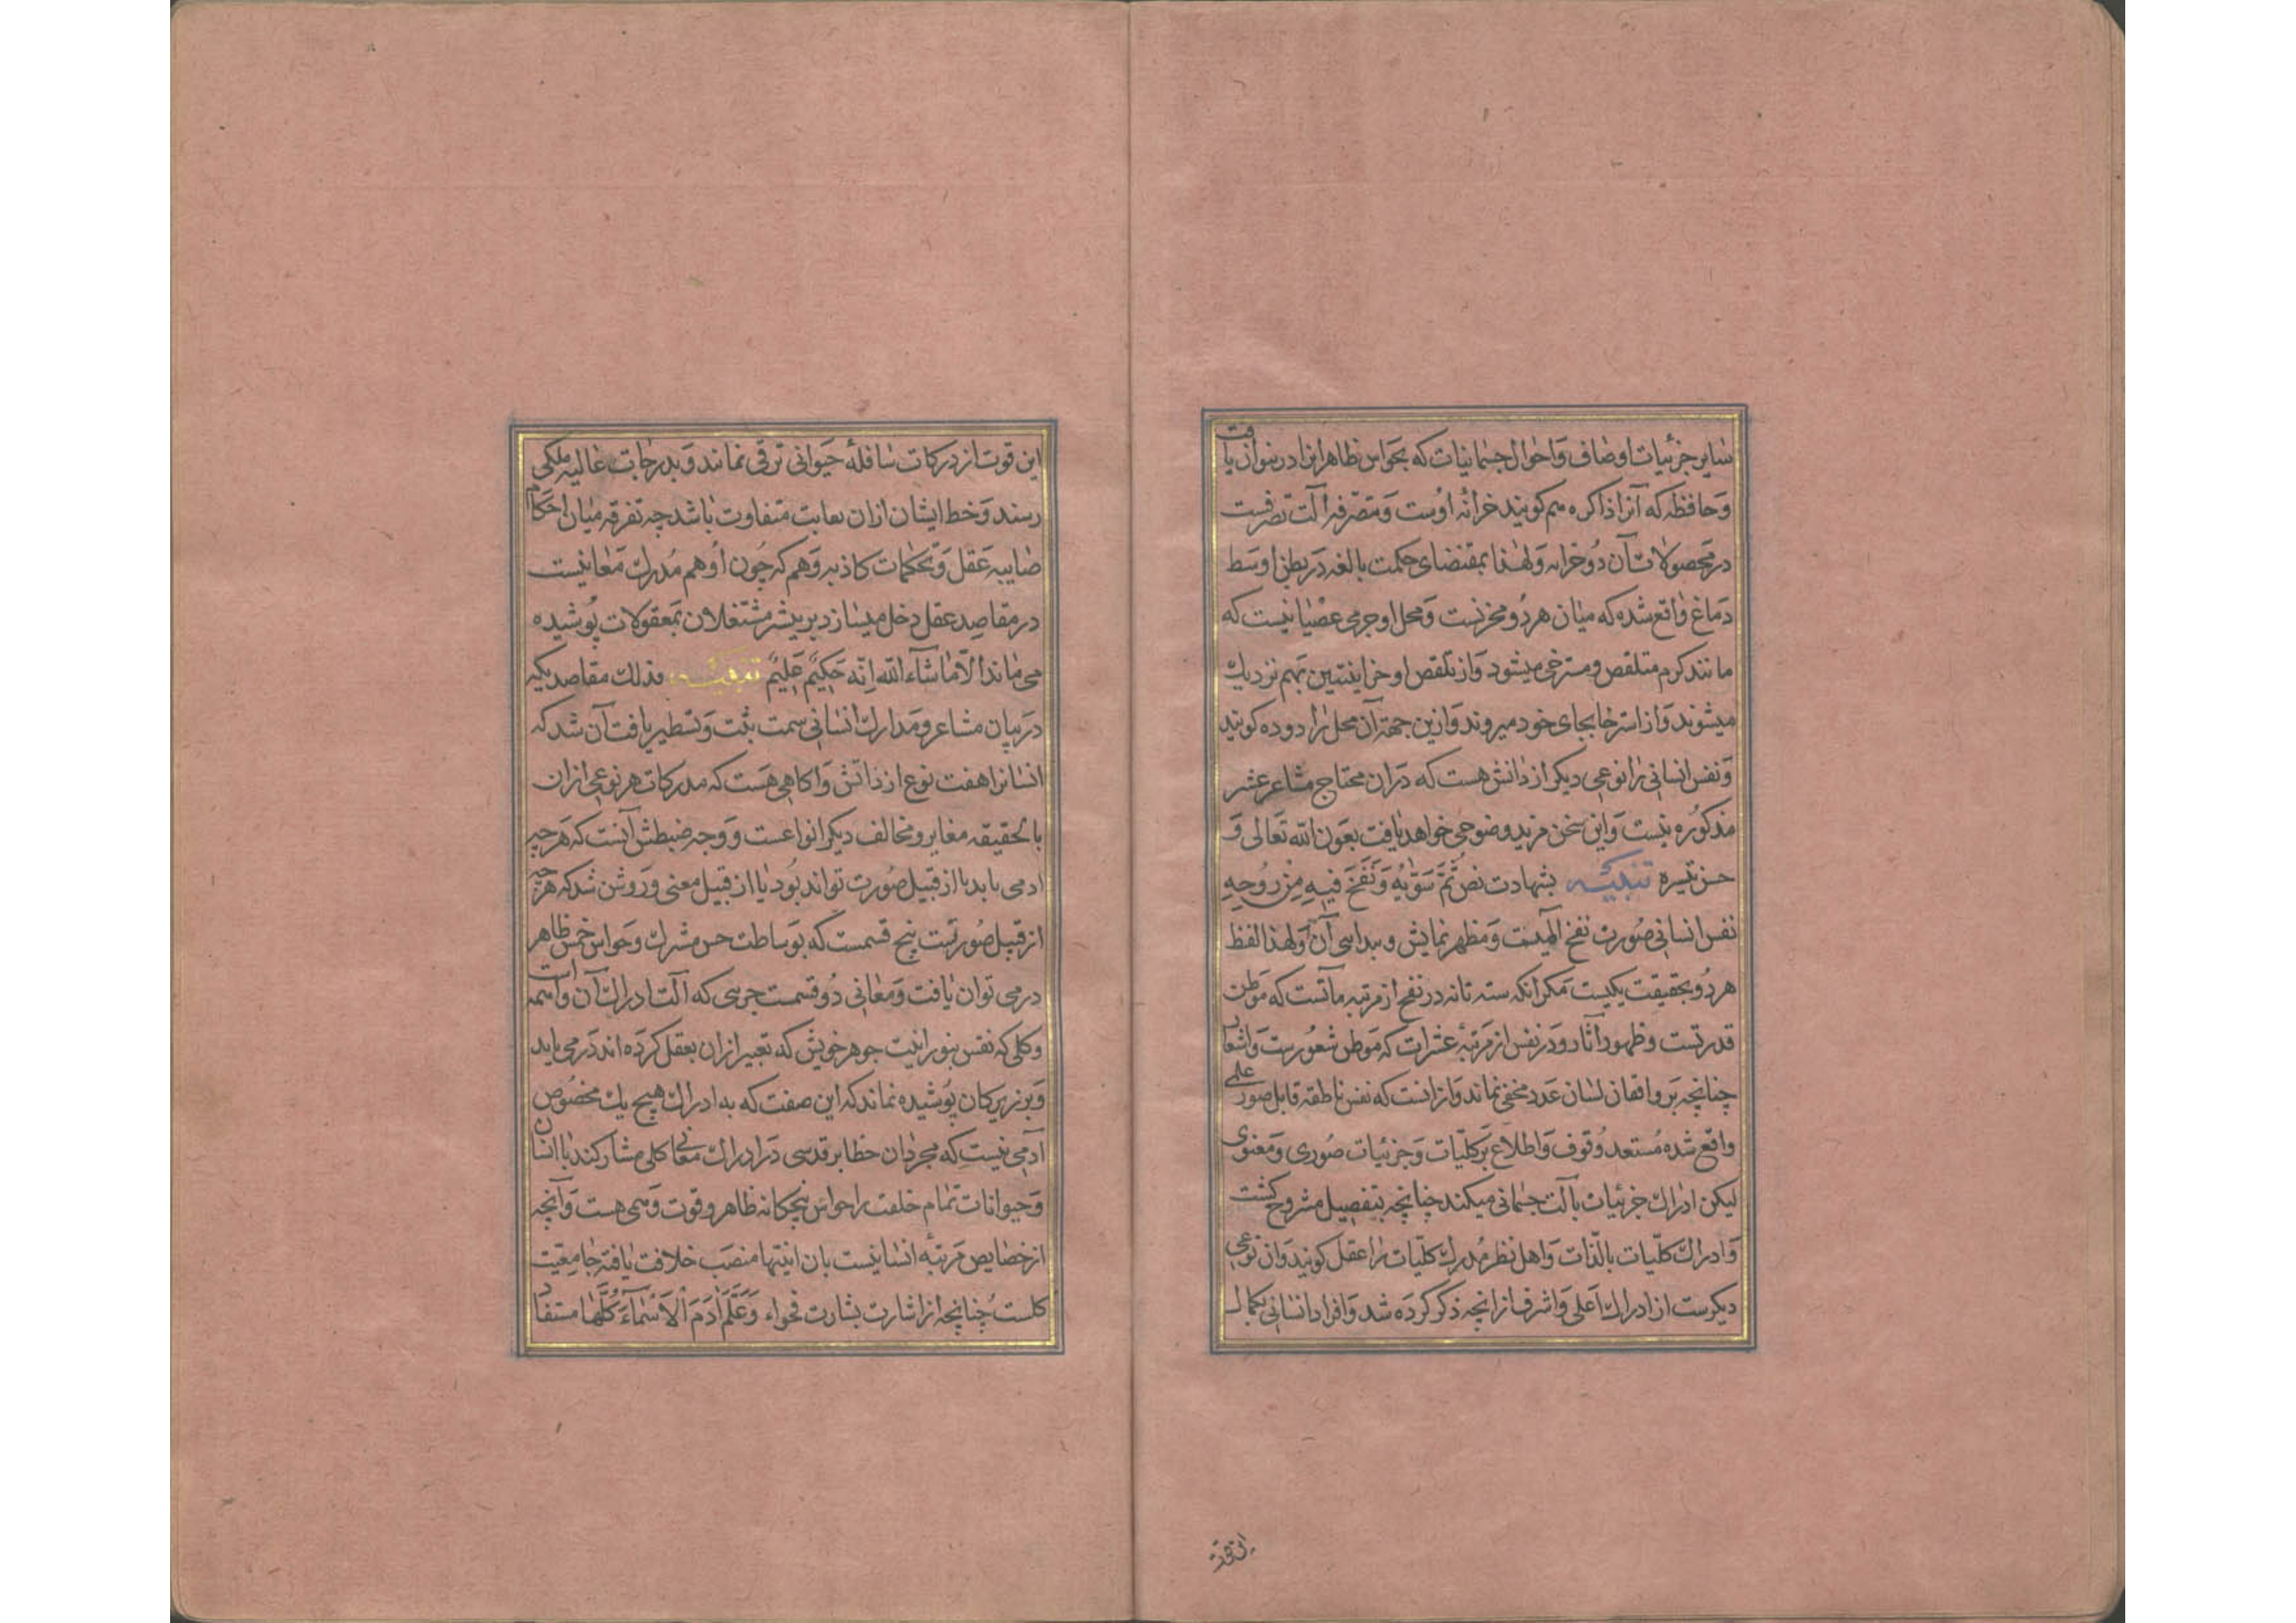 سایر جزئیات اوصاف و احوال جسمانیات که بحواس ظاهر انرا در نتوان یافت
و حافظه که آنرا ذاکره هم کویند خزانهٔ اوست و متصرفه آلت تصرفست
در محصولات آن دو خزانه و لهذا بمقتضای حکمت بالغه در بطن اوسط
دماغ واقع شده که میان هر دو مخزنست و محل او جرمی عصبانیست که
مانند کرم متلقص و مسترخی میشود و از تلقص او خزاینتین بهم نزدیک
میشوند و از استرخا بجای خود میروند و ازین جهة آن محل را دوده کویند
و نفس انسانی را نوعی دیکر از دانش هست که در ان محتاج مشاعر عشر
مذکوره نیست و این سخن مزید وضوحی خواهد یافت بعون الله تعالی و
حسن تیسره تنبیه بشهادت نص ثُمَّ سَوّٰیهُ وَنَفَخَ فیهِ مِنْ رُوحِهِ
نفس انسانی صورت نفخ الهیست و مظهر نمایش و پیدایی آن و لهذا لفظ
هر دو بحقیقت یکیست مکر انکه سته تانه در نفخ از مرتبه مآتست که موطن
قدرتست و ظهور اثار و در نفس از مرتبهٔ عشرات که موطن شعورست و اشعار
چنانچه بر واقفان لسان عدد مخفی نماند و از انست که نفس ناطقه قابل صور علمی
واقع شده مستعد وقوف و اطلاع بر کلیات و جزئیات صوری و معنوی
لیکن ادراک جزئیات بآلت جسمانی میکند چنانچه بتفصیل مشروح کشت
و ادراک کلیات بالذات و اهل نظر مدرک کلیات را عقل کویند و ان نوعی
دیکرست از ادراک اعلی و اشرف از انچه ذکر کرده شد و افراد انسانی بکمال
این قوت
این قوت از درکات سافلهٔ حیوانی ترقی نمانند و بدرجات عالیه ملکی
رسند و خط ایشان ازان بغایت متفاوت باشد چه تفرقه میان احکام
صایبه عقل و تحکمات کاذبه وهم که چون او هم مدرک معانیست
در مقاصد عقل دخل میسازد بر بیشتر مشتغلان بمعقولات پوشیده
می ماند الّا ماشآء الله انّه حَکیمٌ عَلیمٌ تنبیه فذلک مقاصد یکه
در بیان مشاعر و مدارک انسانی سمت ثبت و تسطیر یافت آن شد که
انسانرا هفت نوع از دانش و اکاهی هست که مدرکات هر نوعی ازان
بالحقیقه مغایر و مخالف دیکر انواعست و وجه ضبطش آنست که هر چه
ادمی یابد یا از قبیل صورت تواند بود یا از قبیل معنی و روشن شد که هر چه
از قبیل صورتست پنج قسمست که بوساطت حس مشترک و حواس خمس ظاهر
در می توان یافت و معانی دو قسمت جزیی که آلت ادراک آن واهمه است
و کلی که نفس بنورانیت جوهر خویش که تعبیر ازان بعقل کرده اند در می یابد
و بر زیرکان پوشیده نماند که این صفت که به ادراک هیچ یک مخصوص
آدمی نیست که مجردان حظایر قدسی در ادراک معانی کلی مشارکند با انسان
و حیوانات تمام خلقت را حواس پنجکانه ظاهر و قوت وهمی هست و آنچه
از خصایص مرتبه انسانیست بان اینتها منصب خلافت یافته جامعیت
کلست چنانچه از اشارت بشارت فحواء وَعَلَّمَ اٰدَمَ الْاَسْمَآءَ کُلَّهَا مستفاد